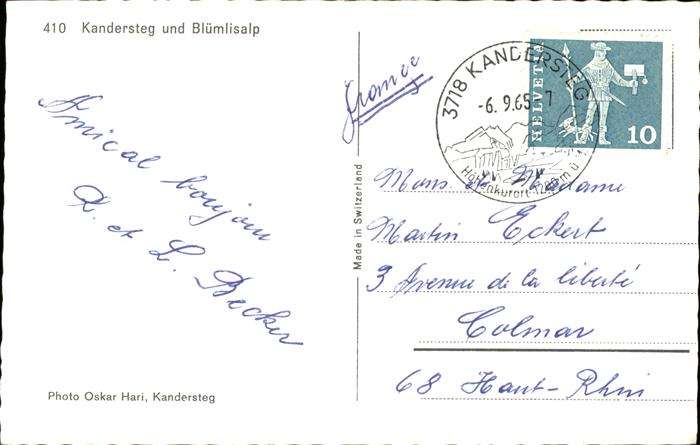 410 Kandersteg und Blümlisalp
Amical bonjour
R. et L. Becker
Photo Oskar Hari, Kandersteg
Made in Switzerland
france
3718 KANDERSTEG
-6. 9.65-7
Höhenkurort 1200 m ü.
HELVETIA
10
Mons. et Madame
Martin Eckert
3 Avenue de la liberté
Colmar
68 Haut-Rhin